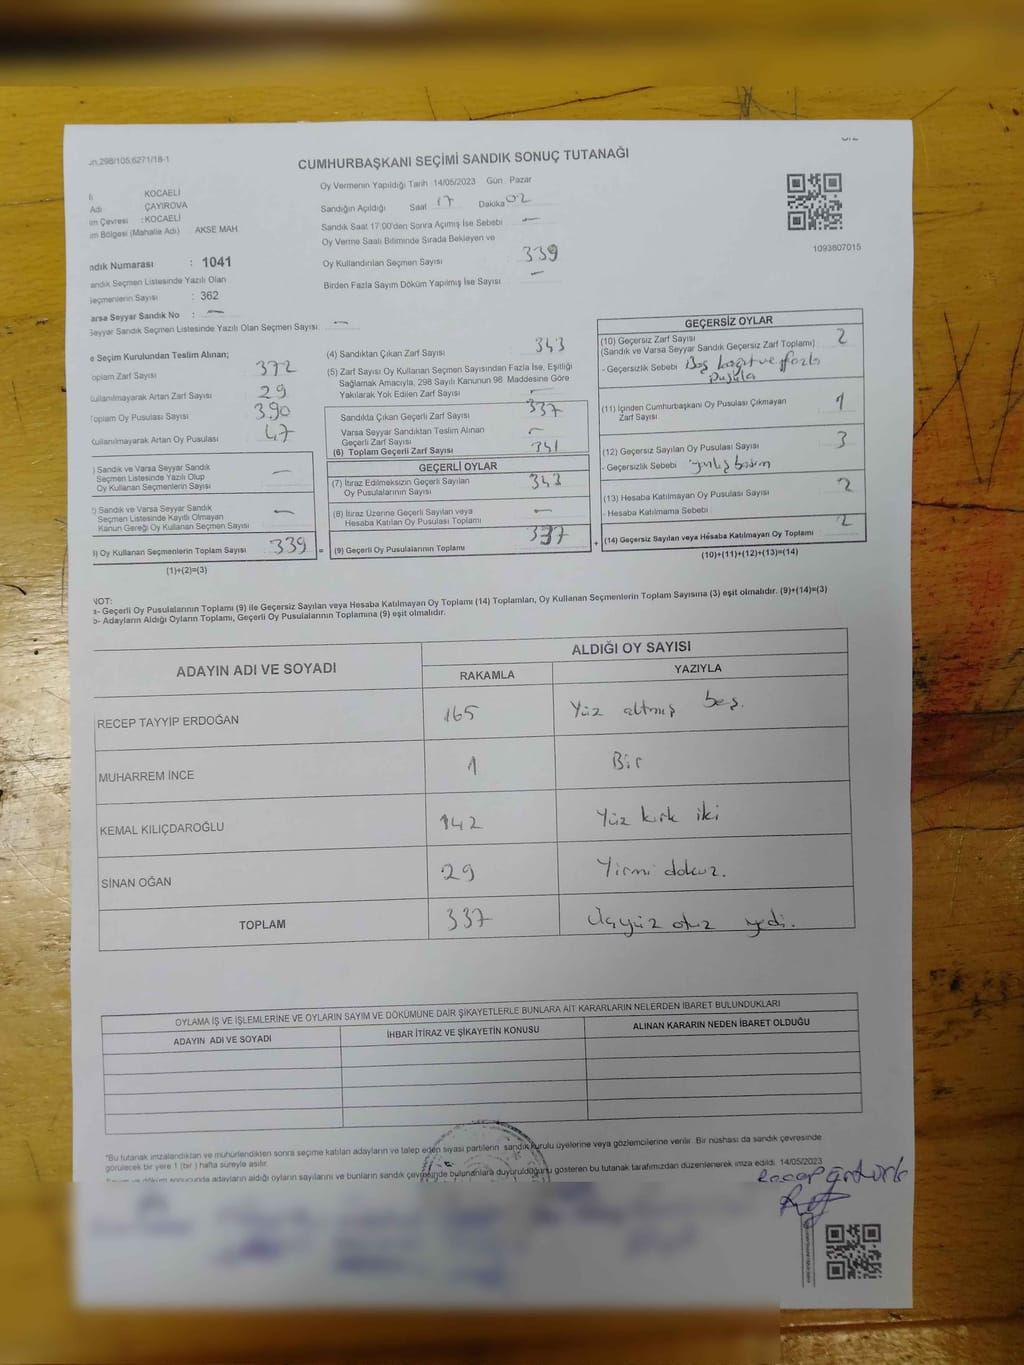 CUMHURBAŞKANI SEÇİMİ SANDIK SONUÇ TUTANAĞI
298/105.6271/18-1
KOCAELİ
Adı ÇAYIROVA
Çevresi : KOCAELİ
Bölgesi (Mahalle Adı) AKSE MAH.
Numarası : 1041
Seçmen Listesinde Yazılı Olan
Seçmenlerin Sayısı : 362
Varsa Seyyar Sandık No : —
Seyyar Sandık Seçmen Listesinde Yazılı Olan Seçmen Sayısı: —
Oy Vermenin Yapıldığı Tarih 14/05/2023 Gün Pazar
Sandığın Açıldığı Saat 17 Dakika 02
Sandık Saat 17:00'den Sonra Açımış İse Sebebi —
Oy Verme Saati Bitiminde Sırada Bekleyen ve
Oy Kullandırılan Seçmen Sayısı 339
Birden Fazla Sayım Döküm Yapılmış İse Sayısı —
1093807015
e Seçim Kurulundan Teslim Alınan;
Toplam Zarf Sayısı 372
Kullanılmayarak Artan Zarf Sayısı 29
Toplam Oy Pusulası Sayısı 390
Kullanılmayarak Artan Oy Pusulası 47
) Sandık ve Varsa Seyyar Sandık
Seçmen Listesinde Yazılı Olup
Oy Kullanan Seçmenlerin Sayısı —
) Sandık ve Varsa Seyyar Sandık
Seçmen Listesinde Kayıtlı Olmayan
Kanun Gereği Oy Kullanan Seçmen Sayısı —
) Oy Kullanan Seçmenlerin Toplam Sayısı 339 =
(1)+(2)=(3)
(4) Sandıktan Çıkan Zarf Sayısı 343
(5) Zarf Sayısı Oy Kullanan Seçmen Sayısından Fazla İse, Eşitliği
Sağlamak Amacıyla, 298 Sayılı Kanunun 98. Maddesine Göre
Yakılarak Yok Edilen Zarf Sayısı —
Sandıkta Çıkan Geçerli Zarf Sayısı 337
Varsa Seyyar Sandıktan Teslim Alınan
Geçerli Zarf Sayısı —
(6) Toplam Geçerli Zarf Sayısı 341
GEÇERLİ OYLAR
(7) İtiraz Edilmeksizin Geçerli Sayılan
Oy Pusulalarının Sayısı 343
(8) İtiraz Üzerine Geçerli Sayılan veya
Hesaba Katılan Oy Pusulası Toplamı —
(9) Geçerli Oy Pusulalarının Toplamı 337 +
GEÇERSİZ OYLAR
(10) Geçersiz Zarf Sayısı 2
(Sandık ve Varsa Seyyar Sandık Geçersiz Zarf Toplamı)
- Geçersizlik Sebebi Boş kağıt ve fazla
pusula
(11) İçinden Cumhurbaşkanı Oy Pusulası Çıkmayan
Zarf Sayısı 1
(12) Geçersiz Sayılan Oy Pusulası Sayısı 3
- Geçersizlik Sebebi yanlış basım
(13) Hesaba Katılmayan Oy Pusulası Sayısı 2
- Hesaba Katılmama Sebebi
(14) Geçersiz Sayılan veya Hesaba Katılmayan Oy Toplamı 2
(10)+(11)+(12)+(13)=(14)
NOT:
a- Geçerli Oy Pusulalarının Toplamı (9) ile Geçersiz Sayılan veya Hesaba Katılmayan Oy Toplamı (14) Toplamları, Oy Kullanan Seçmenlerin Toplam Sayısına (3) eşit olmalıdır. (9)+(14)=(3)
b- Adayların Aldığı Oyların Toplamı, Geçerli Oy Pusulalarının Toplamına (9) eşit olmalıdır.
ADAYIN ADI VE SOYADI ALDIĞI OY SAYISI
RAKAMLA YAZIYLA
RECEP TAYYİP ERDOĞAN 165 Yüz altmış beş.
MUHARREM İNCE 1 Bir
KEMAL KILIÇDAROĞLU 142 Yüz kırk iki
SİNAN OĞAN 29 Yirmi dokuz.
TOPLAM 337 Üçyüz otuz yedi.
OYLAMA İŞ VE İŞLEMLERİNE VE OYLARIN SAYIM VE DÖKÜMÜNE DAİR ŞİKAYETLERLE BUNLARA AİT KARARLARIN NELERDEN İBARET BULUNDUKLARI
ADAYIN ADI VE SOYADI İHBAR İTİRAZ VE ŞİKAYETİN KONUSU ALINAN KARARIN NEDEN İBARET OLDUĞU
"Bu tutanak imzalandıktan ve mühürlendikten sonra seçime katılan adayların ve talep eden siyasi partilerin sandık kurulu üyelerine veya gözlemcilerine verilir. Bir nüshası da sandık çevresinde
görülecek bir yere 1 (bir) hafta süreyle asılır.
döküm sonucunda adayların aldığı oyların sayılarını ve bunların sandık çevresinde bulunanlara duyurulduğunu gösteren bu tutanak tarafımızdan düzenlenerek imza edildi. 14/05/2023
Recep